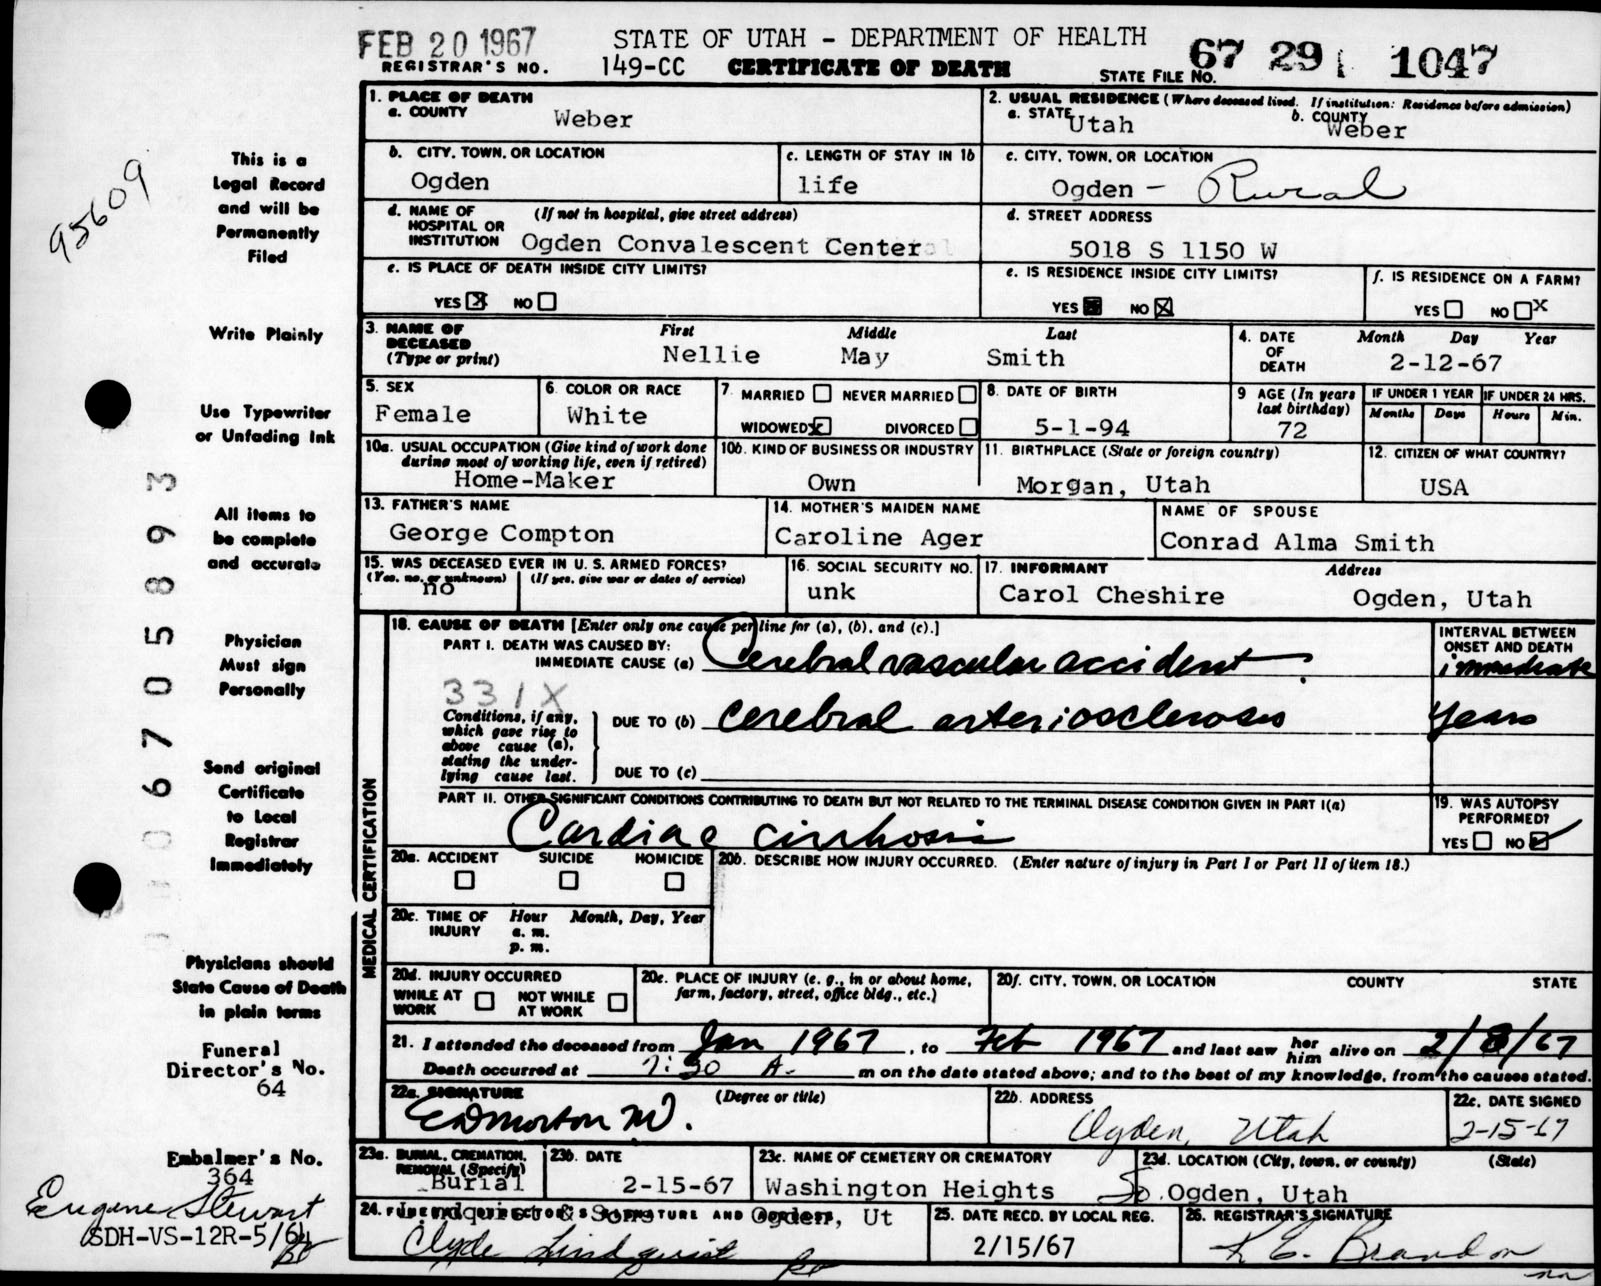 FEB 20 1967
STATE OF UTAH - DEPARTMENT OF HEALTH
REGISTRAR'S NO. 149-CC CERTIFICATE OF DEATH STATE FILE NO. 67 29 1047
95609
This is a
Legal Record
and will be
Permanently
Filed
Write Plainly
Use Typewriter
or Unfading Ink
All items to
be complete
and accurate
Physician
Must sign
Personally
Send original
Certificate
to Local
Registrar
Immediately
Physicians should
State Cause of Death
in plain terms
Funeral
Director's No.
64
Embalmer's No.
364
Eugene Stewart
SDH-VS-12R-5/64
06705893
1. PLACE OF DEATH
a. COUNTY Weber
2. USUAL RESIDENCE (Where deceased lived. If institution: Residence before admission)
a. STATE Utah b. COUNTY Weber
b. CITY, TOWN, OR LOCATION Ogden
c. LENGTH OF STAY IN 1b life
c. CITY, TOWN, OR LOCATION Ogden - Rural
d. NAME OF HOSPITAL OR INSTITUTION (If not in hospital, give street address) Ogden Convalescent Center
d. STREET ADDRESS 5018 S 1150 W
e. IS PLACE OF DEATH INSIDE CITY LIMITS? YES X NO
e. IS RESIDENCE INSIDE CITY LIMITS? YES NO X
f. IS RESIDENCE ON A FARM? YES NO X
3. NAME OF DECEASED (Type or print) First Middle Last
Nellie May Smith
4. DATE OF DEATH Month Day Year
2-12-67
5. SEX Female
6. COLOR OR RACE White
7. MARRIED NEVER MARRIED WIDOWED X DIVORCED
8. DATE OF BIRTH 5-1-94
9 AGE (In years last birthday) 72
IF UNDER 1 YEAR Months Days
IF UNDER 24 HRS. Hours Min.
10a. USUAL OCCUPATION (Give kind of work done during most of working life, even if retired) Home-Maker
10b. KIND OF BUSINESS OR INDUSTRY Own
11. BIRTHPLACE (State or foreign country) Morgan, Utah
12. CITIZEN OF WHAT COUNTRY? USA
13. FATHER'S NAME George Compton
14. MOTHER'S MAIDEN NAME Caroline Ager
NAME OF SPOUSE Conrad Alma Smith
15. WAS DECEASED EVER IN U. S. ARMED FORCES?
(Yes, no, or unknown) (If yes, give war or dates of service)
no
16. SOCIAL SECURITY NO. unk
17. INFORMANT Address
Carol Cheshire Ogden, Utah
MEDICAL CERTIFICATION
18. CAUSE OF DEATH [Enter only one cause per line for (a), (b), and (c).]
INTERVAL BETWEEN ONSET AND DEATH
PART I. DEATH WAS CAUSED BY:
IMMEDIATE CAUSE (a) Cerebral vascular accident immediate
331X
Conditions, if any, which gave rise to above cause (a), stating the underlying cause last.
DUE TO (b) Cerebral arteriosclerosis years
DUE TO (c)
PART II. OTHER SIGNIFICANT CONDITIONS CONTRIBUTING TO DEATH BUT NOT RELATED TO THE TERMINAL DISEASE CONDITION GIVEN IN PART I(a)
Cardiac cirrhosis
19. WAS AUTOPSY PERFORMED? YES NO
20a. ACCIDENT SUICIDE HOMICIDE
20b. DESCRIBE HOW INJURY OCCURRED. (Enter nature of injury in Part I or Part II of item 18.)
20c. TIME OF INJURY Hour Month, Day, Year
a. m.
p. m.
20d. INJURY OCCURRED
WHILE AT WORK NOT WHILE AT WORK
20e. PLACE OF INJURY (e. g., in or about home, farm, factory, street, office bldg., etc.)
20f. CITY, TOWN, OR LOCATION COUNTY STATE
21. I attended the deceased from Jan 1967, to Feb 1967 and last saw her him alive on 2/8/67
Death occurred at 7:50 A. m on the date stated above; and to the best of my knowledge, from the causes stated.
22a. SIGNATURE (Degree or title)
22b. ADDRESS Ogden, Utah
22c. DATE SIGNED 2-15-67
23a. BURIAL, CREMATION, REMOVAL (Specify) Burial
23b. DATE 2-15-67
23c. NAME OF CEMETERY OR CREMATORY Washington Heights
23d. LOCATION (City, town, or county) (State)
So. Ogden, Utah
24. FUNERAL DIRECTOR'S SIGNATURE AND ADDRESS
Lindquist & Sons Ogden, Ut
Clyde Lindquist
25. DATE RECD. BY LOCAL REG. 2/15/67
26. REGISTRAR'S SIGNATURE